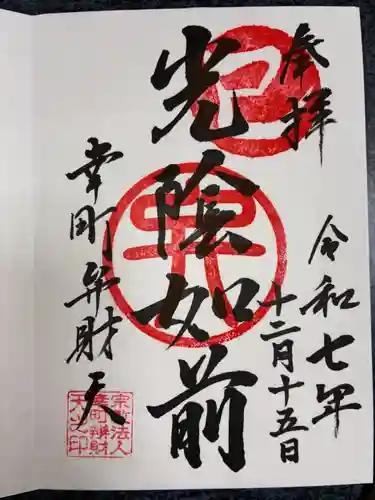 奉拝
令和七年
十二月十五日
光陰如前
幸町弁財天
宗教法人
幸町辨財
天之印